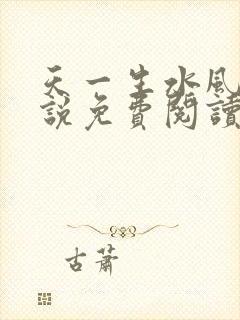 天一生水風
說免費閱讀
古蕭